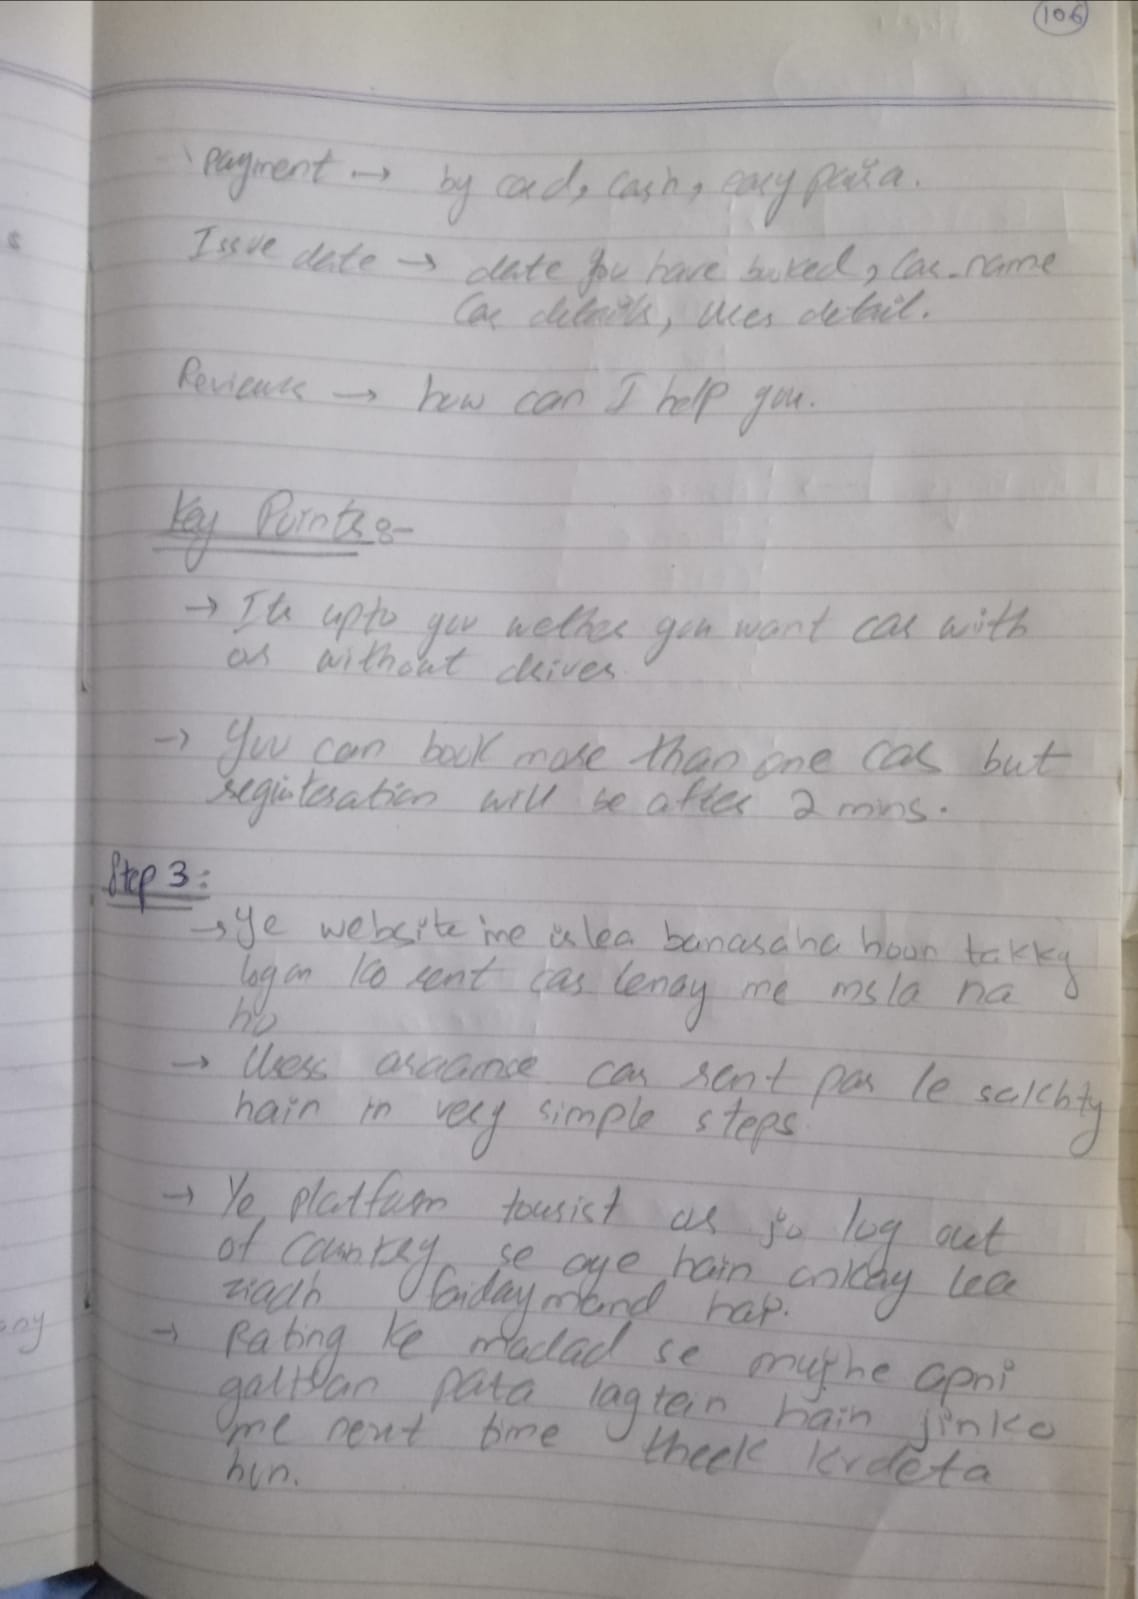 106
Payment → by card, cash, easy paisa.
Issue date → date you have booked, Car name
Car details, User detail.
Reviews → how can I help you.
Key Points:-
→ Its upto you wether you want car with
or without driver
→ You can book more than one car but
registeration will be after 2 mins.
Step 3:
→ Ye website me is lea banaraha houn takky
logon ko rent car lenay me msla na
ho
→ Users araamse car rent par le sakhty
hain in very simple steps
→ Ye platform tourist or jo log out
of country se aye hain unkay lea
ziadh faidaymand hai.
→ Rating ke madad se mujhe apni
galtian pata lagtein hain jinko
me next time theek krdeta
hun.
s
any